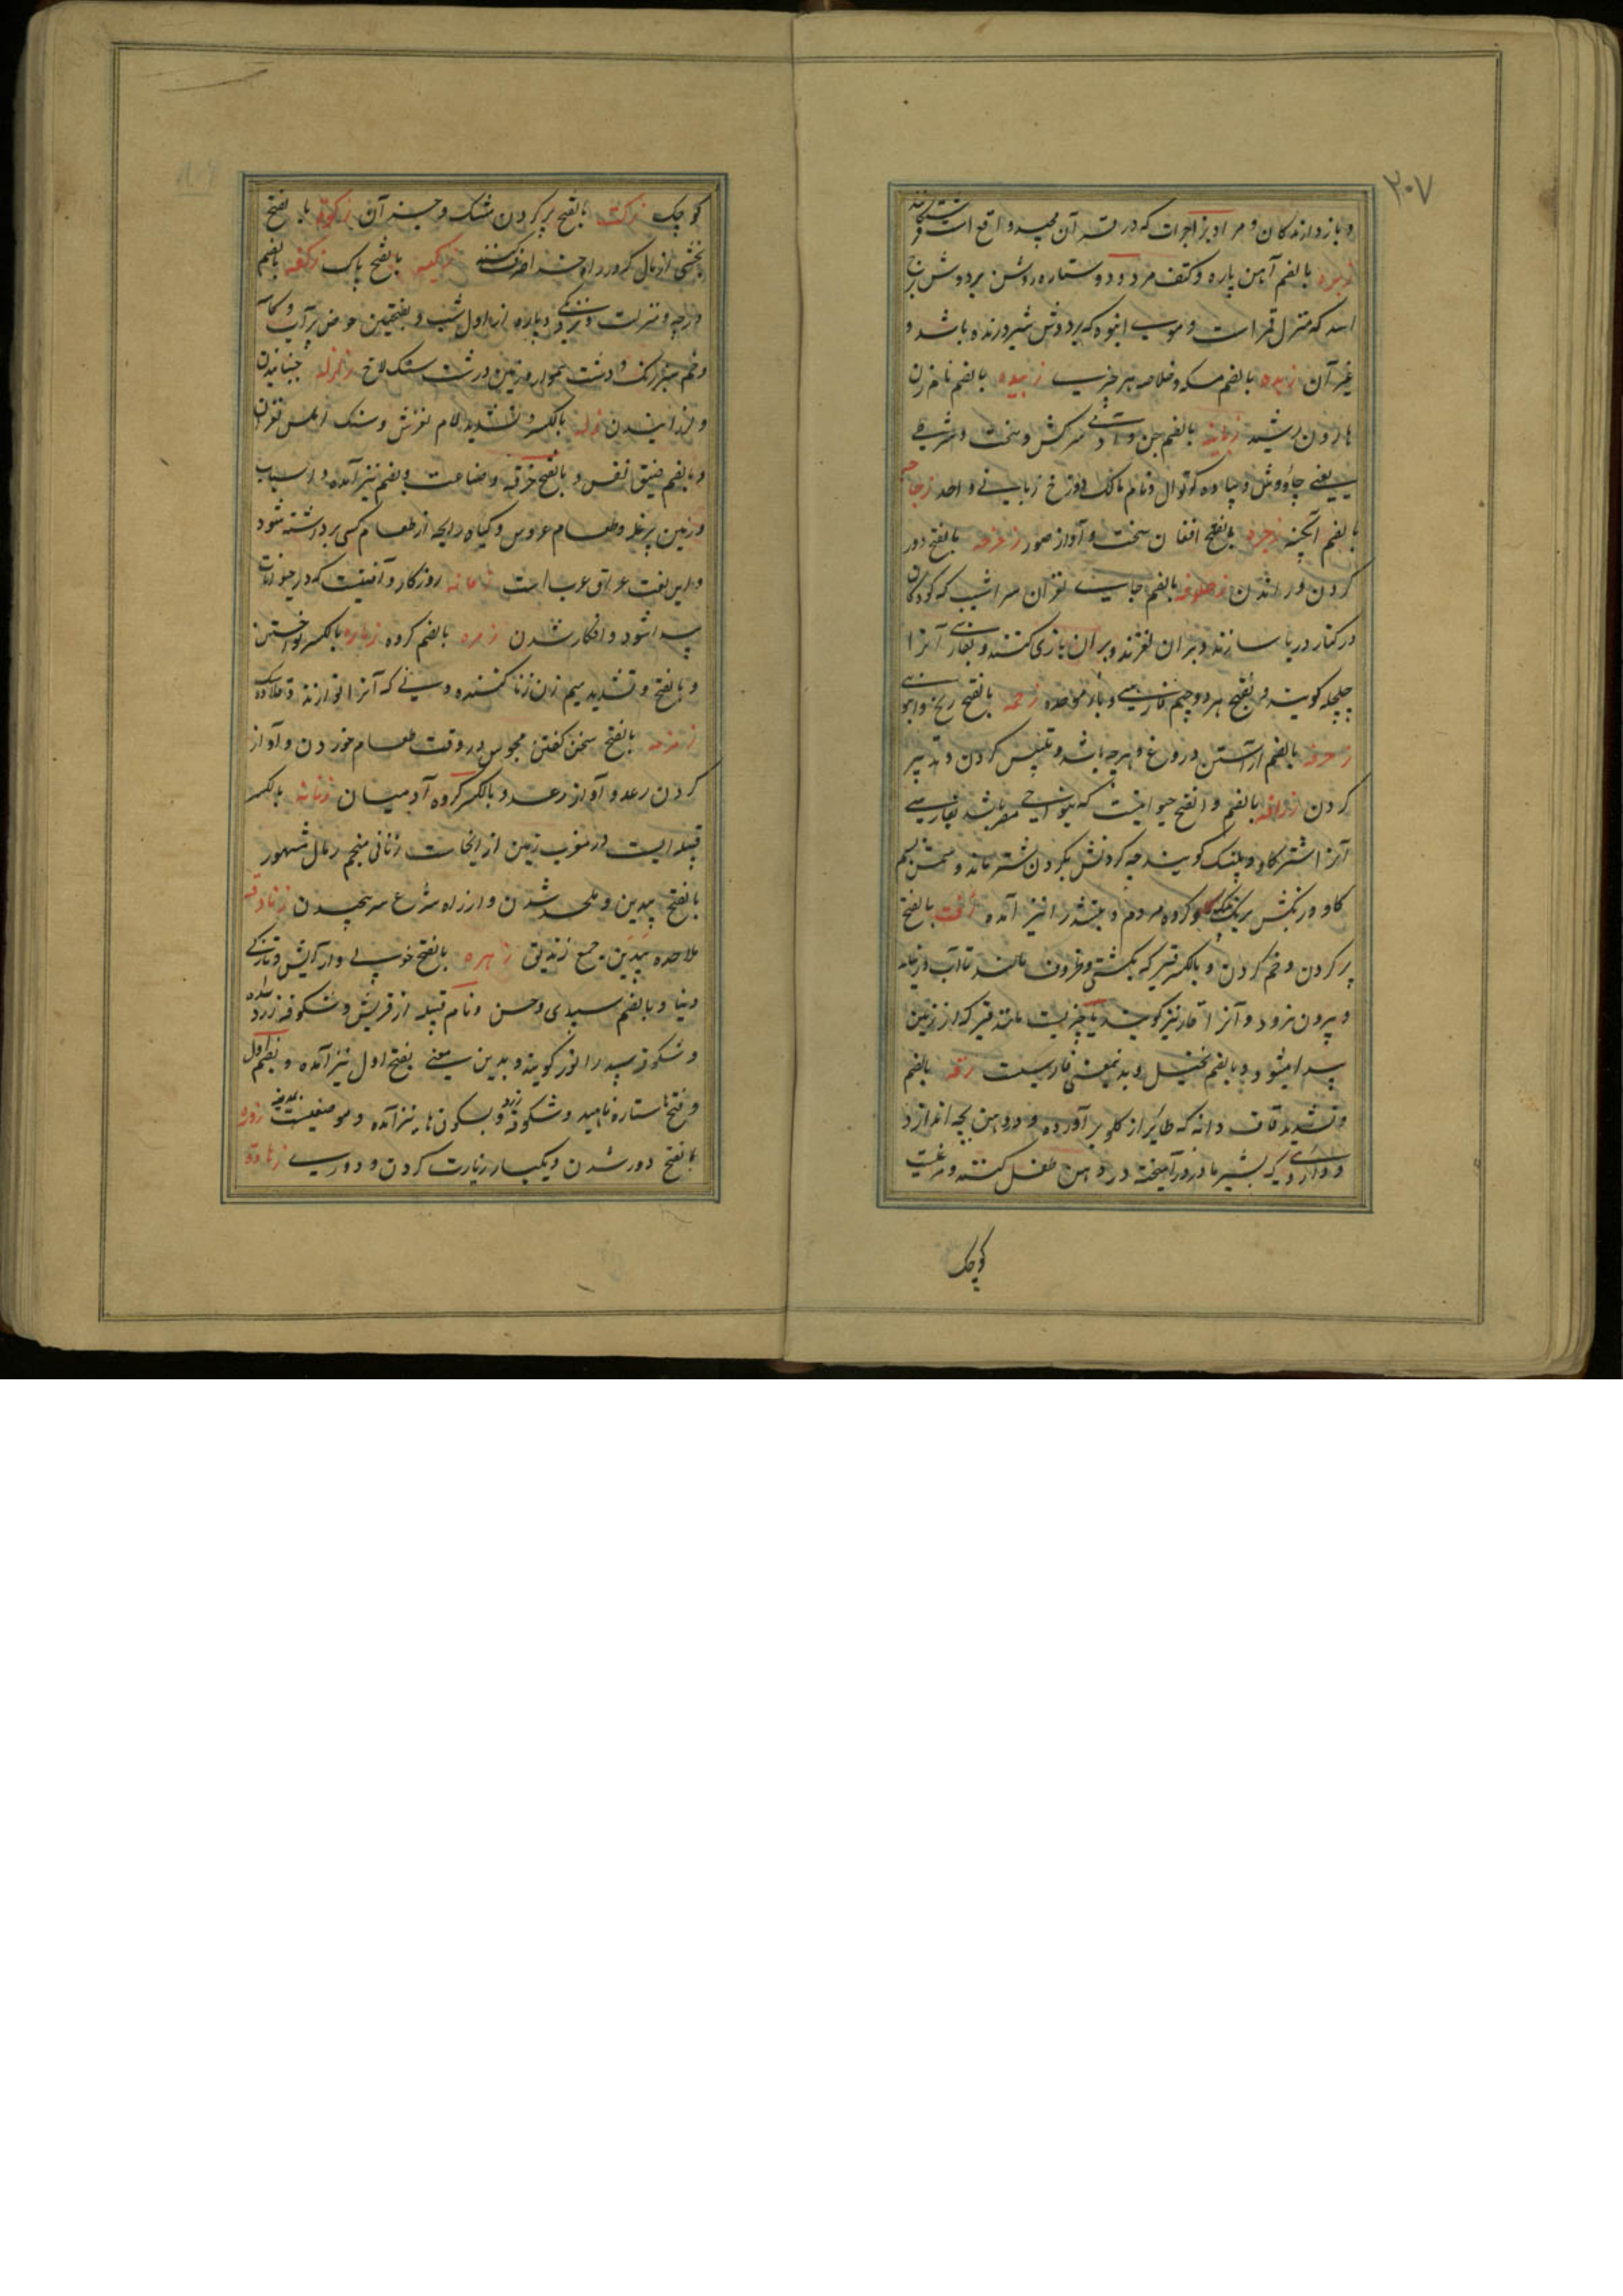 ۲۰۷
و باز دارندگان و مراد بزاجرات که در قرآن مجید واقع است فرشتگانند
زبره بالضم آهن پاره و کتف مرد و دو ستاره روشن بر دوش برج
اسد که منزل قمر است و موی انبوه که بر دوش شیر درنده باشد و
غیر آن زبده بالضم مسکه و خلاصه هر چیزی زبیده بالضم نام زن
هارون رشید زبانیه بالضم جن و آدمی سرکش و سخت و سرشرطی
یعنی چاووش و پیاده کوتوال و نام مالک دوزخ زبانی واحد زجاجه
بالضم آبگینه زجره بالفتح افغان سخت و آواز صور زحزحه بالفتح دور
کردن و راندن زحلوفه بالضم جای لغزان سراشیب که کودکان
در کنار دریا سازند و بران لغزند و بران بازی کنند و بفارسی آنرا
چلچله گویند بفتح هر دو جیم فارسی زحمه بالفتح رنج و انبوهی
زخرفه بالضم آراستن دروغ و هرچه باشد و تلبیس کردن و تدبیر
کردن زرافه بالضم و الفتح حیوانیست که بنواحی مصر باشد بفارسی
آنرا اشتر گاو پلنگ گویند چه گردنش بگردن شتر ماند و سمش بسم
گاو و رنگش برنگ پلنگ و گروه مردم و بتشدید را نیز آمده زفت بالفتح
پر کردن و خم کردن و بالکسر قیر که بکشتی و ظروف مالند تا آب در نیاید
و بیرون نرود و آنرا قار نیز گویند یا چیزیست مانند قیر که از زمین
پیدا میشود و بالضم بخیل و بدینمعنی فارسیست زقه بالضم
و تشدید قاف دانه که طایر از گلو بر آورده و در دهن بچه اندازد
و داروی که بشیر مادر در آمیخته در دهن طفل کنند و مرغیست
کوچک
کوچک زکت بالفتح پر کردن مشک و جز آن زکوة بالفتح
بخشی از مال که در راه خدا صرف کنند زکیه بالفتح پاک زلفه بالضم
درجه و منزلت و نزدیکی و پاره از اول شب و بفتحتین حوض پر آب و کاسه
و خم سبز رنگ و دشت هموار و زمین درشت سنگلاخ زلزله جنبانیدن
و لرزانیدن زله بالکسر و تشدید لام لغزش و سنگ املس لغزان
و بالضم ضیق نفس و بالفتح خرقه و ضاعت و بضم نیز آمده و اسباب
و زمین پرغله و طعام عروس و گیاه رایحه از طعام کسی برداشته شود
و این لغت عراق عرب است زمانه روزگار و آفتیست که در حیوانات
پیدا شود و افکار شدن زمره بالضم گروه زماره بالکسر نواختن
و بالفتح و تشدید میم زن زنا کننده و نی که آنرا نوازند و قلاده سگ
زمزمه بالفتح سخن گفتن مجوس در وقت طعام خوردن و آواز
کردن رعد و آواز رعد و بالکسر گروه آدمیان زناته بالکسر
قبیله ایست در مغرب زمین از انجاست زناتی منجم رمال مشهور
بالفتح بیدین و ملحد شدن و از راه شرع سر پیچیدن زنادقه
ملاحده بیدین جمع زندیق زهره بالفتح خوبی و آرایش و تازگی
دنیا و بالضم سپیدی و حسن و نام قبیله از قریش و شکوفه زرد
و شکوفه سپید را نور گویند و بدین معنی بفتح اول نیز آمده و بضم اول
و فتح ها ستاره ناهید و شکوفه زرد و بسکون ها نیز آمده و موضعیست بمدینه زوره
بالفتح دور شدن و یکبار زیارت کردن و دوری زهادة